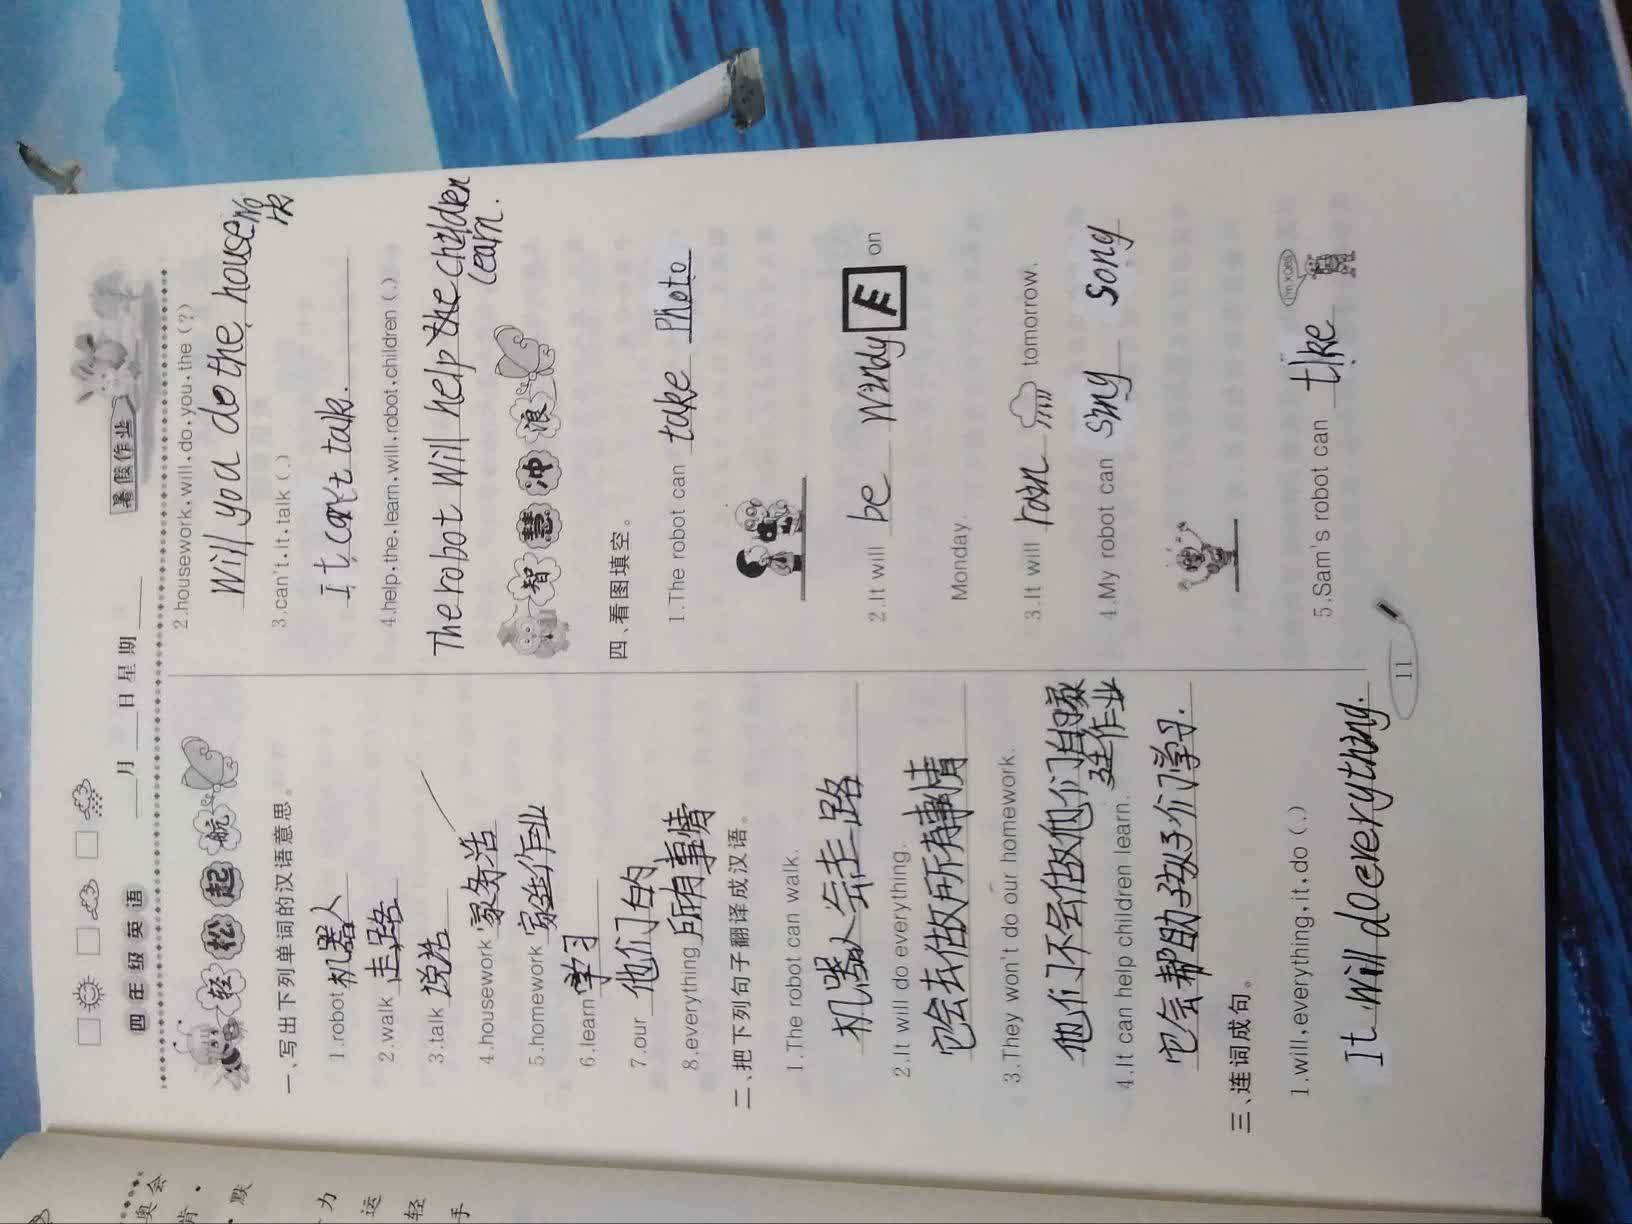 四年级英语
___月___日 星期___
暑假作业
轻松起航
一、写出下列单词的汉语意思。
1.robot 机器人
2.walk 走路
3.talk 说话
4.housework 家务活
5.homework 家庭作业
6.learn 学习
7.our 他们的
8.everything 所有事情
二、把下列句子翻译成汉语。
1.The robot can walk.
机器人会走路
2.It will do everything.
它会去做所有事情
3.They won't do our homework.
他们不会做他们自家
庭作业
4.It can help children learn.
它会帮助孩子们学习.
三、连词成句。
1.will,everything,it,do(.)
It will do everything.
2.housework,will,do,you,the(?)
Will you do the housewo
rk
3.can't,It,talk(.)
It can't talk.
4.help,the,learn,will,robot,children(.)
The robot will help the children
learn.
智慧冲浪
四、看图填空。
1.The robot can take photo
2.It will be windy on
Monday.
3.It will rain tomorrow.
4.My robot can sing song
5.Sam's robot can
11
奥会
肯·
·默
为
运
轻
手